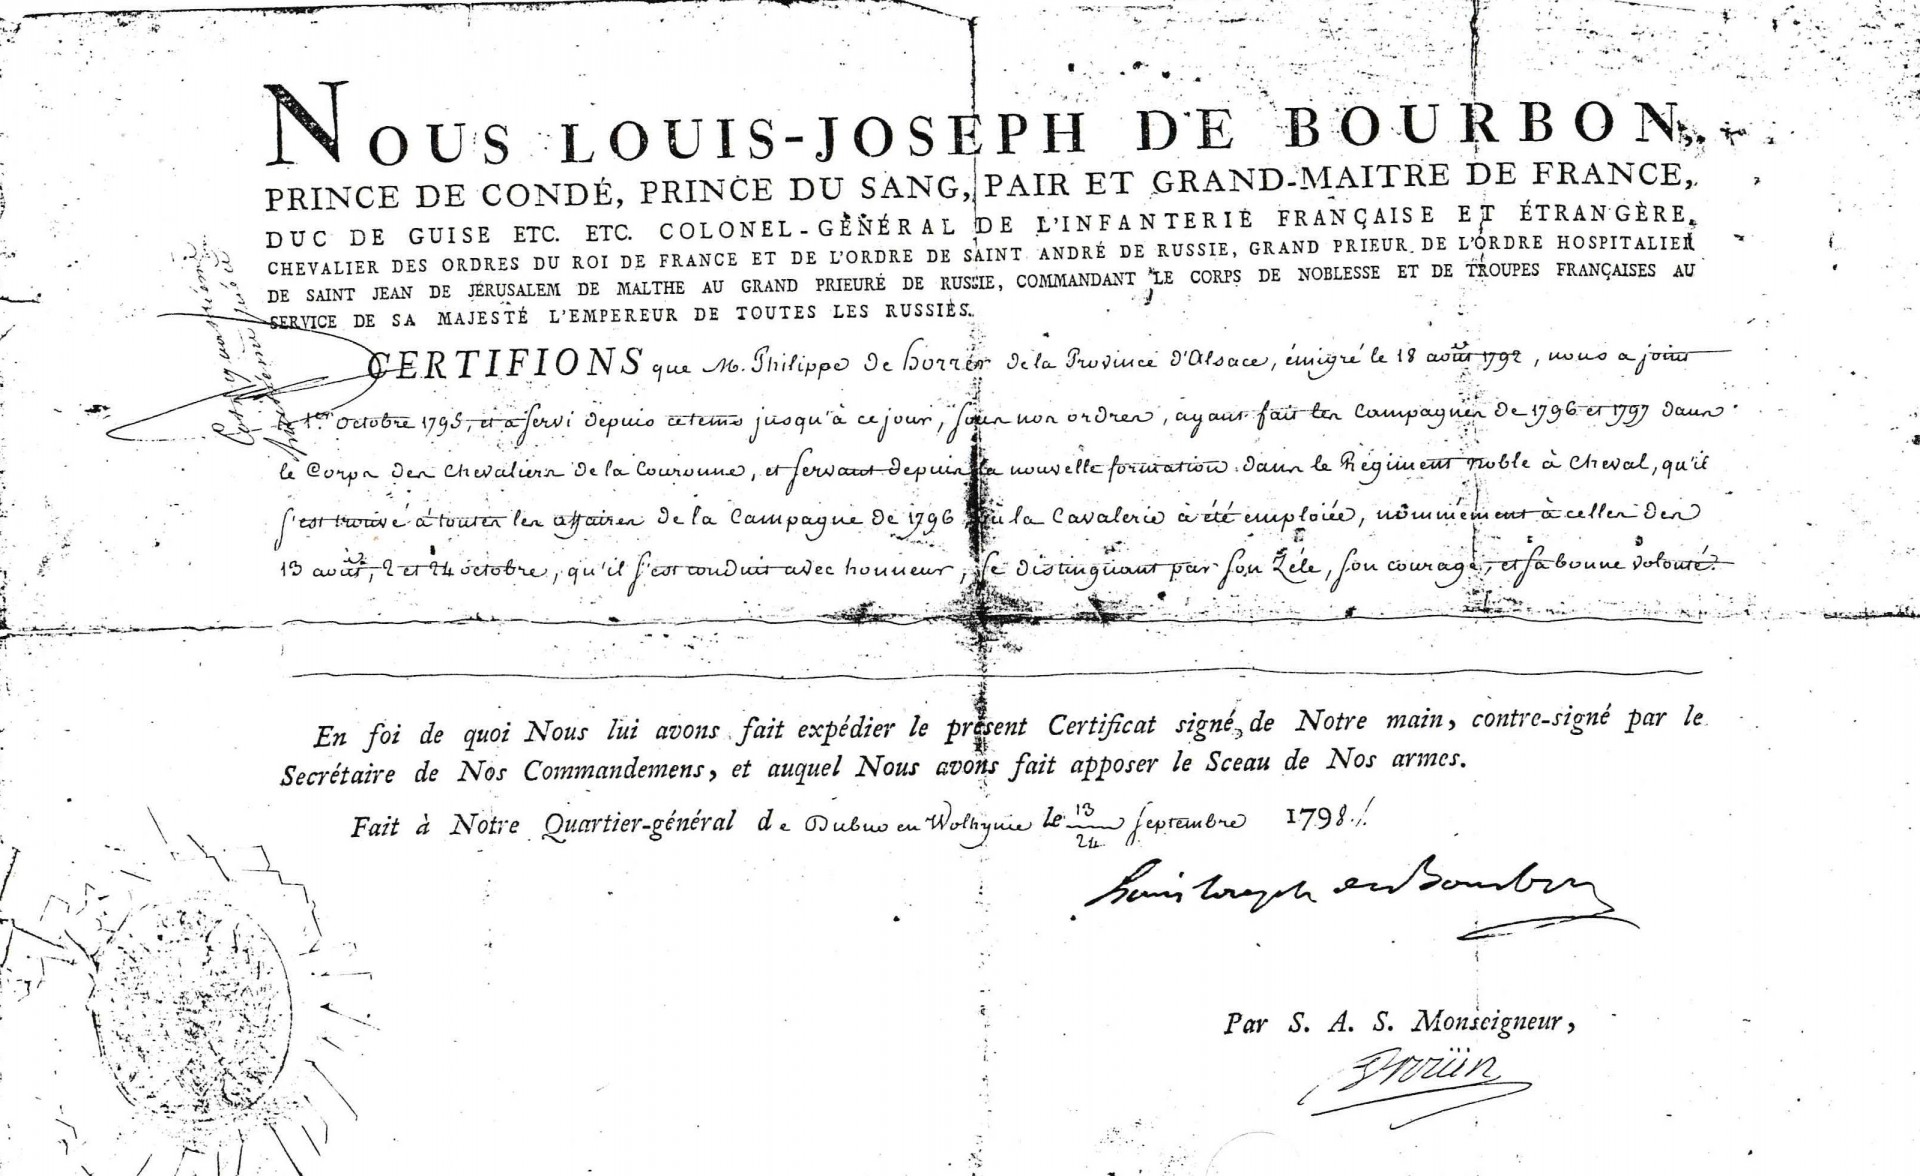 NOUS LOUIS-JOSEPH DE BOURBON,
PRINCE DE CONDÉ, PRINCE DU SANG, PAIR ET GRAND-MAITRE DE FRANCE,
DUC DE GUISE ETC. ETC. COLONEL-GÉNÉRAL DE L'INFANTERIE FRANÇAISE ET ÉTRANGÈRE,
CHEVALIER DES ORDRES DU ROI DE FRANCE ET DE L'ORDRE DE SAINT ANDRÉ DE RUSSIE, GRAND PRIEUR DE L'ORDRE HOSPITALIER
DE SAINT JEAN DE JÉRUSALEM DE MALTHE AU GRAND PRIEURÉ DE RUSSIE, COMMANDANT LE CORPS DE NOBLESSE ET DE TROUPES FRANÇAISES AU
SERVICE DE SA MAJESTÉ L'EMPEREUR DE TOUTES LES RUSSIES.
CERTIFIONS que M. Philippe de horrer de la Province d'Alsace, émigré le 18 août 1792, nous a joint
le 1er octobre 1795, et a servi depuis ce tems jusqu'à ce jour, sous nos ordres, ayant fait les Campagnes de 1796 et 1797 dans
le Corps des Chevaliers de la Couronne, et servant depuis la nouvelle formation dans le Régiment noble à Cheval, qu'il
s'est trouvé à toutes les affaires de la Campagne de 1796 où la Cavalerie a été emploiée, nommément à celles des
13 août, 2 et 24 octobre, qu'il s'est conduit avec honneur, se distinguant par son Zéle, son courage, et sa bonne volonté.
En foi de quoi Nous lui avons fait expédier le présent Certificat signé de Notre main, contre-signé par le
Secrétaire de Nos Commandemens, et auquel Nous avons fait apposer le Sceau de Nos armes.
Fait à Notre Quartier-général de Dubno en Wolhynie le 13/24 septembre 1798./.
Louis Joseph de Bourbon
Par S. A. S. Monseigneur,